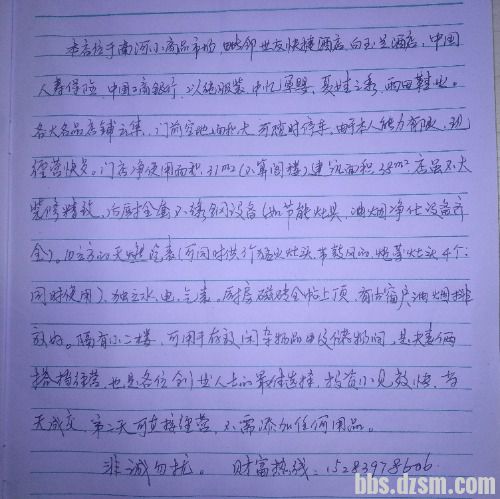 本店位于南河小商品市场，毗邻世友快捷酒店，白玉兰酒店，中国
人寿保险，中国工商银行，以纯服装，中忆孕婴，夏娃之秀，雨田鞋业。
各大名品店铺云集，门前空地面积大，可随时停车，由于本人能力有限，现
经营快点。门店净使用面积31m²（不算阁楼）建筑面积38m²，店虽不大
装修精致，后厨全套不锈钢设备（如节能灶具，油烟净化设备齐
全）。10立方的天燃气表（可同时供行猛火灶头带鼓风的，炮菜灶头4个
同时使用）。独立水、电、气表。厨房磁砖全贴上顶，有出窗户油烟排
放好。隔有小二楼，可用于存放闲杂物品及储物间，是夫妻俩
搭档经营，也是各位创业人士的最佳选择，投资小见效快，当
天成交，第二天可直接经营，不需添加任何用品。
非诚勿扰。 财富热线：15283978606
bbs.dzsm.com